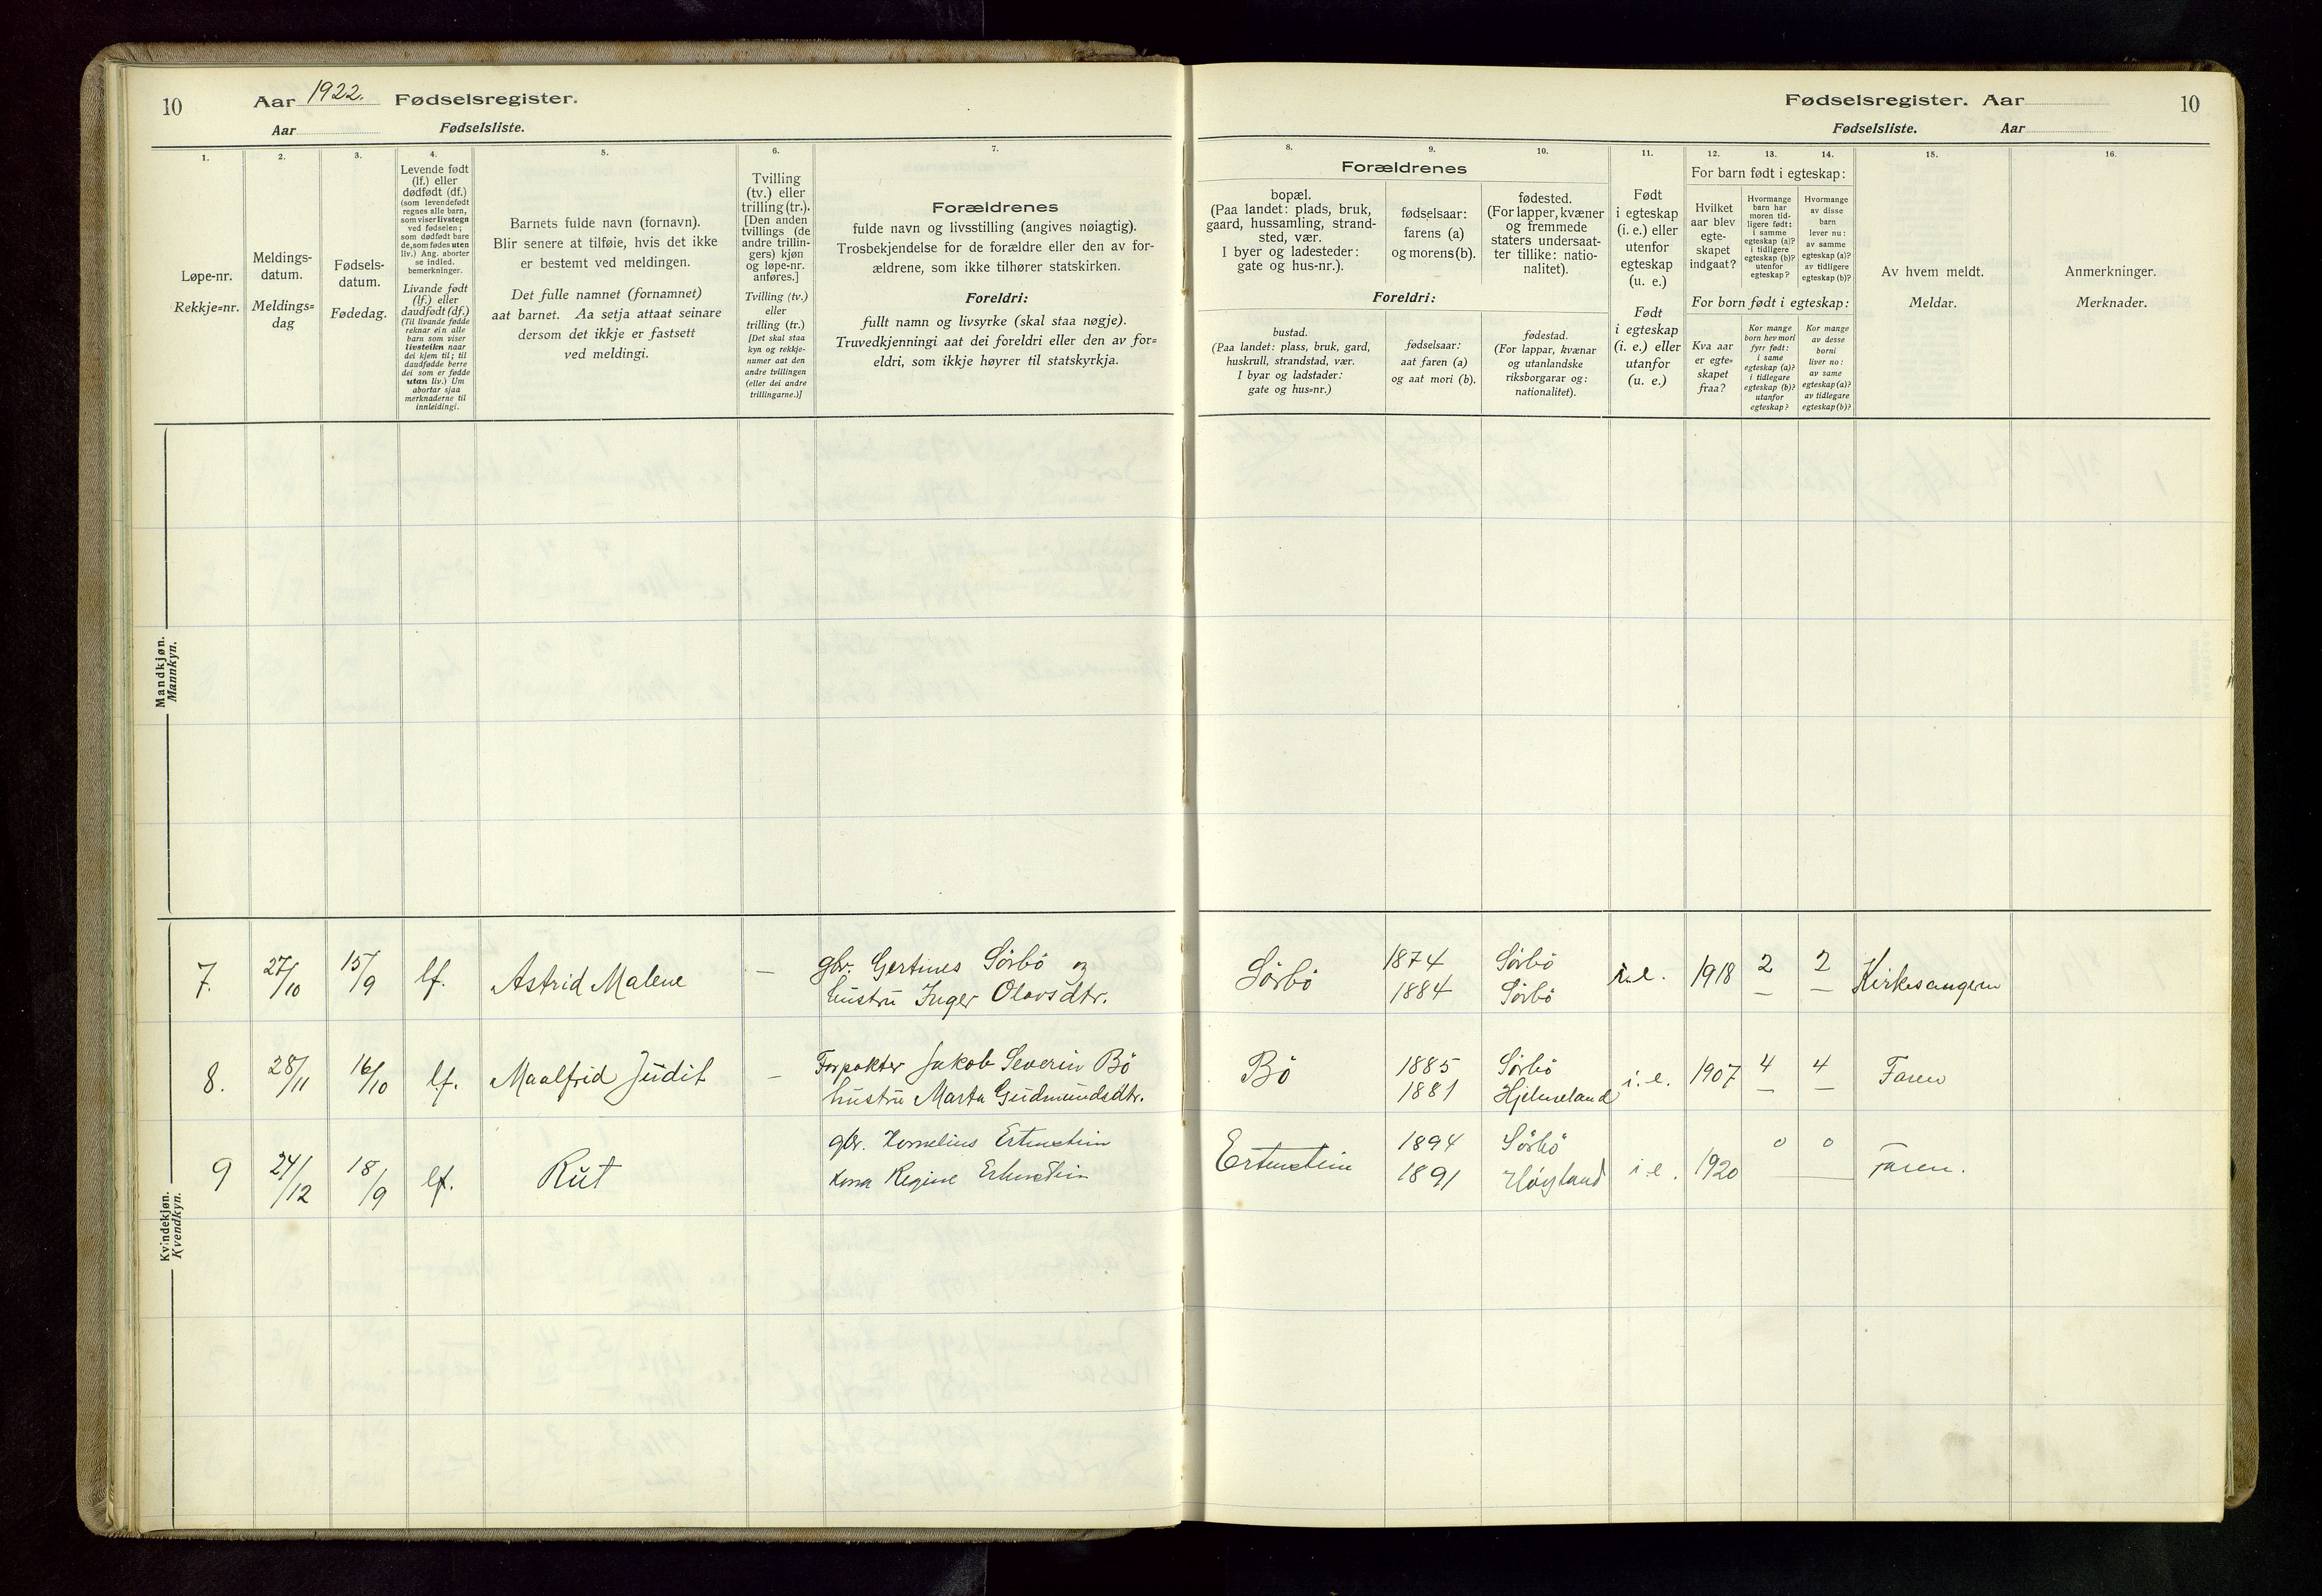 10
Aar 1922. Fødselsregister.
Aar Fødselsliste.
Fødselsregister. Aar
10
Fødselsliste. Aar
1.
Løpe-nr.
Rekkje=nr.
2.
Meldings-
datum.
Meldings=
dag
3.
Fødsels-
datum.
Fødedag.
4.
Levende født
(lf.) eller
dødfødt (df.)
(som levendefødt
regnes alle barn,
som viser livstegn
ved fødselen;
som dødfødt bare
de, som fødes uten
liv.) Ang. aborter
se indled.
bemerkninger.
Livande født
(lf.) eller
daudfødt (df.)
(Til livande fødde
reknar ein alle
barn som viser
livsteikn naar
dei kjem til; til
daudfødde berre
dei som er fødde
utan liv.) Um
abortar sjaa
merknaderne til
innleidingi.
5.
Barnets fulde navn (fornavn).
Blir senere at tilføie, hvis det ikke
er bestemt ved meldingen.
Det fulle namnet (fornamnet)
aat barnet. Aa setja attaat seinare
dersom det ikkje er fastsett
ved meldingi.
6.
Tvilling
(tv.) eller
trilling (tr.).
[Den anden
tvillings (de
andre trillin-
gers) kjøn
og løpe-nr.
anføres.]
Tvilling (tv.)
eller
trilling (tr.)
[Det skal staa
kyn og rekkje-
numer aat den
andre tvillingen
(eller dei andre
trillingarne.)]
7.
Forældrenes
fulde navn og livsstilling (angives nøiagtig).
Trosbekjendelse for de forældre eller den av for-
ældrene, som ikke tilhører statskirken.
Foreldri:
fullt namn og livsyrke (skal staa nøgje).
Truvedkjenningi aat dei foreldri eller den av for=
eldri, som ikkje høyrer til statskyrkja.
Forældrenes
8.
bopæl.
(Paa landet: plads, bruk,
gaard, hussamling, strand-
sted, vær.
I byer og ladesteder:
gate og hus-nr.).
9.
fødselsaar:
farens (a)
og morens (b).
10.
fødested.
(For lapper, kvæner
og fremmede
staters undersaat-
ter tillike: natio-
nalitet).
Foreldri:
bustad.
(Paa landet: plass, bruk, gard,
huskrull, strandstad, vær.
I byar og ladstader:
gate og hus=nr.)
fødselsaar:
aat faren (a)
og aat mori (b).
fødestad.
(For lappar, kvænar
og utanlandske
riksborgarar og:
nationalitet).
11.
Født
i egteskap
(i. e.) eller
utenfor
egteskap
(u. e.)
Født
i egteskap
(i. e.) eller
utanfor
(u. e.)
For barn født i egteskap:
12.
Hvilket
aar blev
egte-
skapet
indgaat?
13.
Hvormange
barn har
moren tid-
ligere født:
i samme
egteskap (a)?
i tidligere
egteskap (b)?
utenfor
egteskap?
14.
Hvormange
av disse
barn
lever nu:
av samme
egteskap (a)?
av tidligere
egteskap (b)?
For born født i egteskap:
Kva aar
er egte=
skapet
fraa?
Kor mange
born hev mori
fyrr født:
i same
egteskap (a)?
i tidlegare
egteskap (b)?
utanfor
egteskap?
Kor mange
av desse
borni
liver no:
av same
egteskap (a)?
av tidlegare
egteskap (b)?
15.
Av hvem meldt.
Meldar.
16.
Anmerkninger.
Merknader.
Mandkjøn.
Mannkyn.
Kvindekjøn.
Kvendkyn.
7. 27/10 15/9 lf. Astrid Malene — gbr. Gertines Sörbö og Sörbö 1874 Sörbö i.e. 1918 2 2 Kirkesangeren
hustru Inger Olavsdtr. 1884 Sörbö — —
8. 28/11 16/10 lf. Maalfrid Judit — Forpakter Jakob Severin Bö Bö 1885 Sörbö i.e. 1907 4 4 Faren
hustru Marta Gudmundsdtr. 1881 Hjelmeland — —
9 24/12 18/9 lf. Rut gbr. Kornelius Ertenstein Ertenstein 1894 Sörbö i.e. 1920 0 0 Faren.
kona Regine Ertenstein 1891 Höyland —